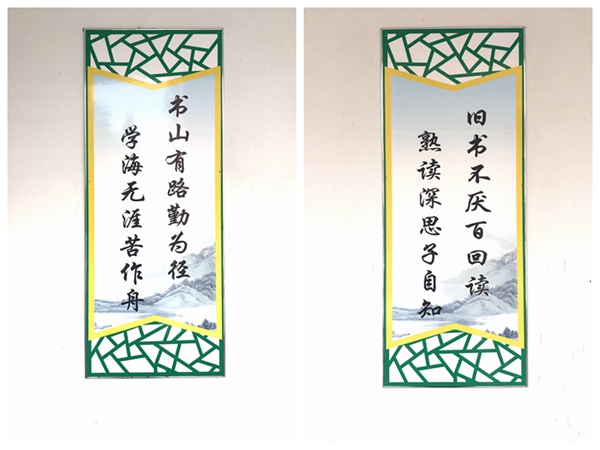 书山有路勤为径
学海无涯苦作舟
旧书不厌百回读
熟读深思子自知